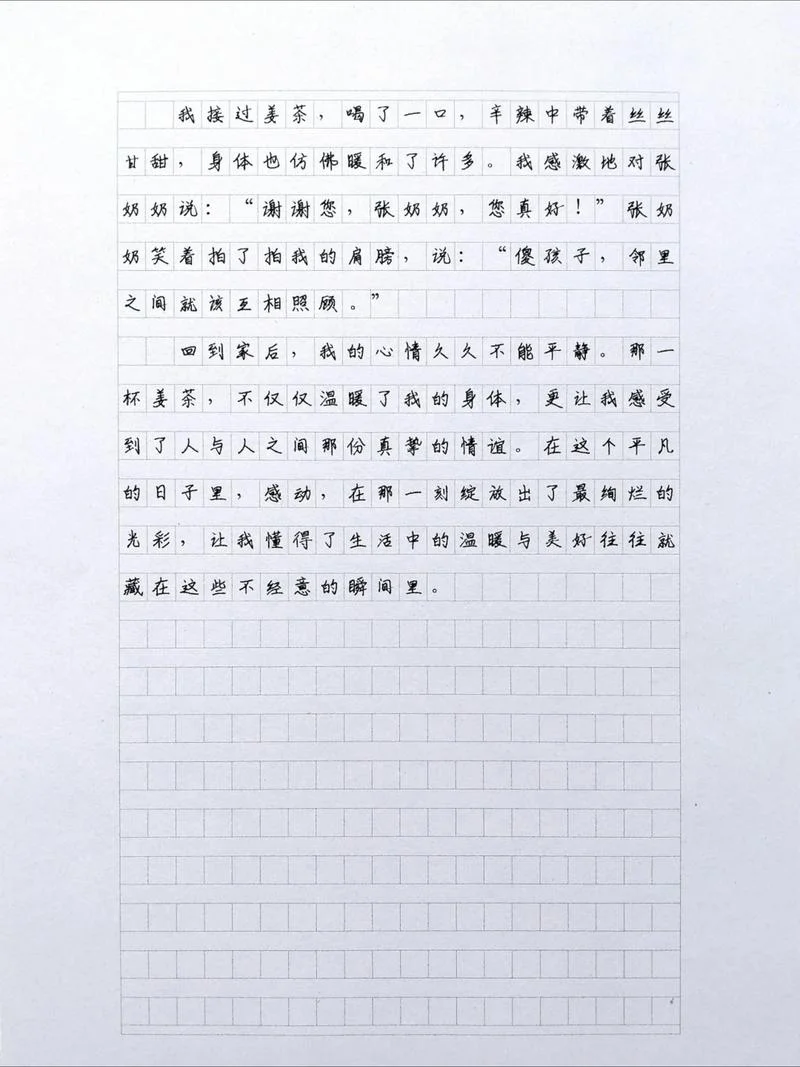 我接过姜茶，喝了一口，辛辣中带着丝丝
甘甜，身体也仿佛暖和了许多。我感激地对张
奶奶说：“谢谢您，张奶奶，您真好！”张奶
奶笑着拍了拍我的肩膀，说：“傻孩子，邻里
之间就该互相照顾。”
回到家后，我的心情久久不能平静。那一
杯姜茶，不仅仅温暖了我的身体，更让我感受
到了人与人之间那份真挚的情谊。在这个平凡
的日子里，感动，在那一刻绽放出了最绚烂的
光彩，让我懂得了生活中的温暖与美好往往就
藏在这些不经意的瞬间里。